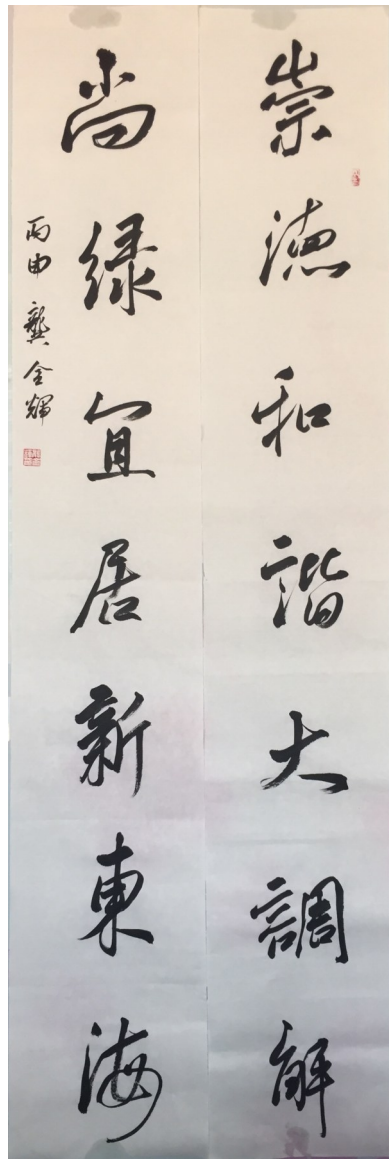 崇德和諧大調解
尚绿宜居新東海
丙申 龔全輝